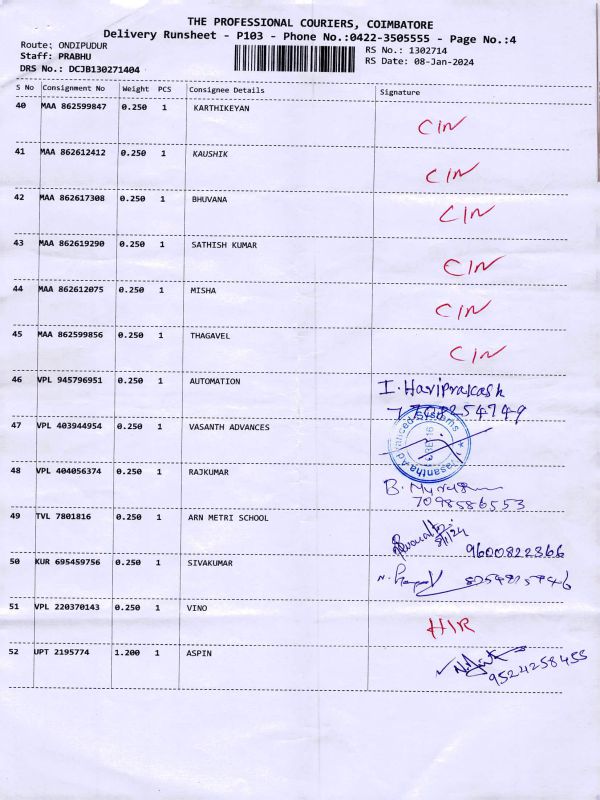 THE PROFESSIONAL COURIERS, COIMBATORE
Delivery Runsheet - P103 - Phone No.:0422-3505555 - Page No.:4
Route: ONDIPUDUR RS No.: 1302714
Staff: PRABHU RS Date: 08-Jan-2024
DRS No.: DCJB130271404
S No Consignment No Weight PCS Consignee Details Signature
40 MAA 862599847 0.250 1 KARTHIKEYAN CIN
41 MAA 862612412 0.250 1 KAUSHIK CIN
42 MAA 862617308 0.250 1 BHUVANA CIN
43 MAA 862619290 0.250 1 SATHISH KUMAR CIN
44 MAA 862612075 0.250 1 MISHA CIN
45 MAA 862599856 0.250 1 THAGAVEL CIN
46 VPL 945796951 0.250 1 AUTOMATION I. Hariprakash
47 VPL 403944954 0.250 1 VASANTH ADVANCES
48 VPL 404056374 0.250 1 RAJKUMAR B.
7098586553
49 TVL 7801816 0.250 1 ARN METRI SCHOOL 9600822366
50 KUR 695459756 0.250 1 SIVAKUMAR
51 VPL 220370143 0.250 1 VINO HIR
52 UPT 2195774 1.200 1 ASPIN
9524258455